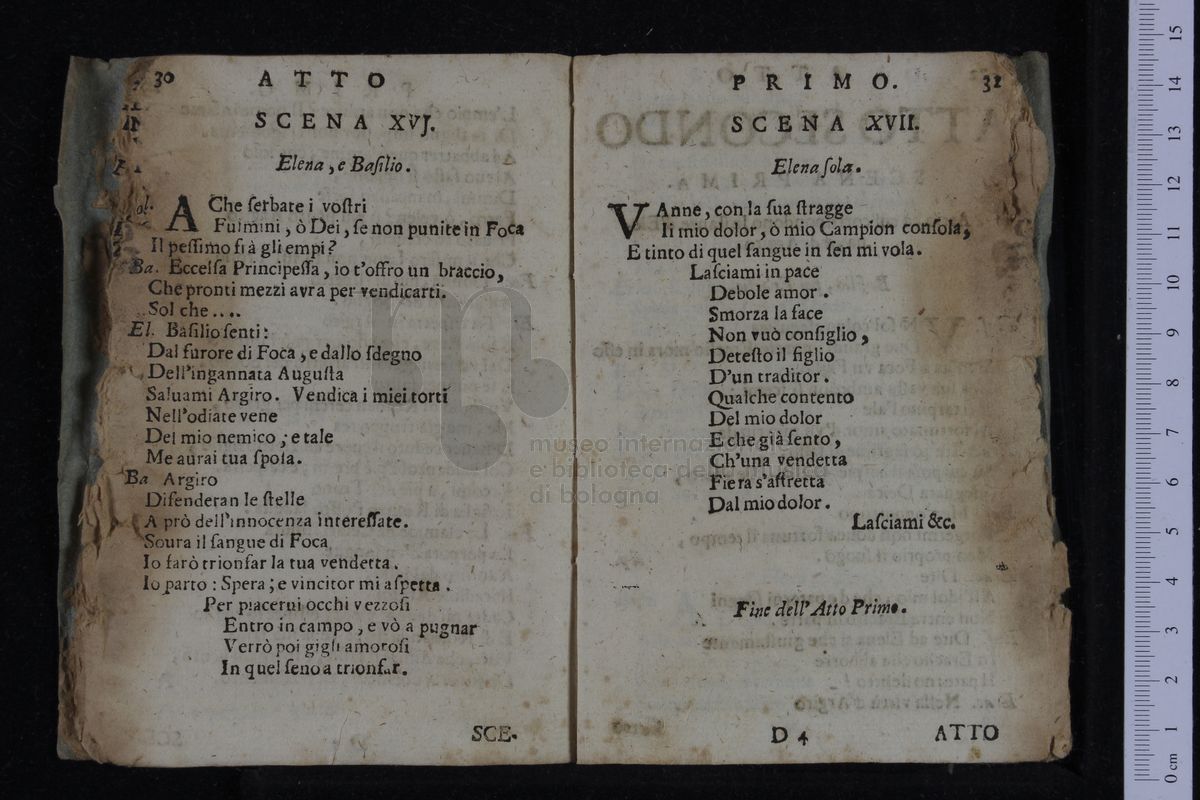 30 ATTO
SCENA XVJ.
Elena, e Baſilio.
A Che ſerbate i voſtri
Fulmini, ò Dei, ſe non punite in Foca
Il peſſimo frà gli empi?
Ba. Eccelſa Principeſſa, io t'offro un braccio,
Che pronti mezzi avra per vendicarti.
Sol che....
El. Baſilio ſenti:
Dal furore di Foca, e dallo ſdegno
Dell'ingannata Auguſta
Saluami Argiro. Vendica i miei torti
Nell'odiate vene
Del mio nemico; e tale
Me aurai tua ſpoſa.
Ba Argiro
Difenderan le ſtelle
A prò dell'innocenza intereſſate.
Soura il ſangue di Foca
Io farò trionfar la tua vendetta.
Io parto: Spera; e vincitor mi aſpetta.
Per piacerui occhi vezzoſi
Entro in campo, e vò a pugnar
Verrò poi gigli amoroſi
In quel ſeno a trionfar.
SCE-
PRIMO. 31
SCENA XVII.
Elena ſola.
VAnne, con la ſua ſtragge
Il mio dolor, ò mio Campion conſola,
E tinto di quel ſangue in ſen mi vola.
Laſciami in pace
Debole amor.
Smorza la face
Non vuò conſiglio,
Deteſto il figlio
D'un traditor.
Qualche contento
Del mio dolor
E che già ſento,
Ch'una vendetta
Fiera s'affretta
Dal mio dolor.
Laſciami &c.
Fine dell'Atto Primo.
D 4 ATTO
museo internazionale
e biblioteca della musica
di bologna